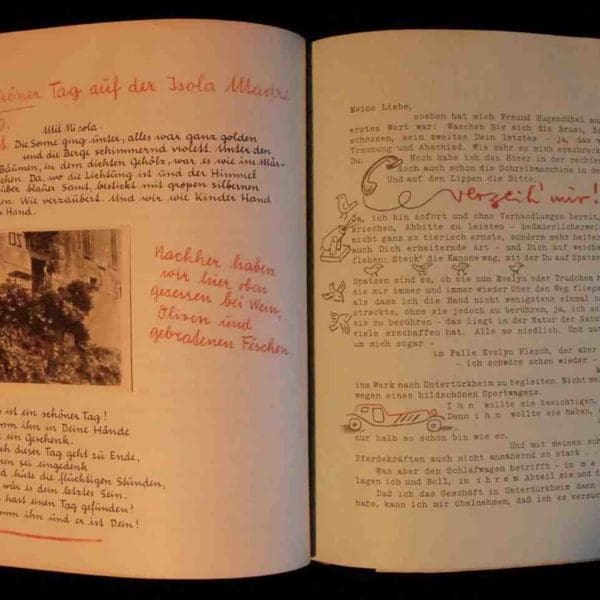 höner Tag auf der Isola Madre
Mit Nicola.
Die Sonne ging unter, alles war ganz golden
und die Berge schimmernd violett. Unter den
Bäumen, in dem dichten Gehölz, war es wie im Mär-
chen. Da, wo die Lichtung ist und der Himmel
über blauer Samt, bestickt mit großen silbernen
Wie verzaubert. Und wir wie Kinder Hand
Hand.
Nachher haben
wir hier oben
gesessen bei Wein,
Oliven und
gebratenen Fischen
ist ein schöner Tag!
ihn in Deine Hände
ein Geschenk.
dieser Tag geht zu Ende,
sei eingedenk
hüte die flüchtigen Stunden,
wär es dein letztes Sein.
hast einen Tag gefunden!
ihn und er ist Dein!
Meine Liebe,
soeben hat mich Freund Hugendübel an
erstes Wort war: Waschen Sie sich die Brust, Si
schossen, sein zweites Dein letztes - ja, das w
Trennung und Abschied. Wie sehr es mich erschreck
Du: Noch habe ich den Hörer in der rechten
doch auch schon die Schreibmaschine in de
Und auf den Lippen die Bitte:
verzeih' mir!
Ja, ich bin sofort und ohne Verhandlungen bereit,
krischen, Abbitte zu leisten - bedauerlicherweis
nicht ganz so tierisch ernste, sondern mehr heiter
auch Dich erheiternde Art - und Dich auf weiche
flehen: Steck' die Kanone weg, mit der Du auf Spatze
Spatzen sind es, ob sie nun Evelyn oder Trudchen h
sie mir immer und immer wieder über den Weg flieg
als dass ich die Hand nicht wenigstens einmal n
streckte, ohne sie jedoch zu berühren, ja, ich sc
sie zu berühren - das liegt in der Natur der Natu
viele erschaffen hat. Alle so niedlich. Und aut
um mich sogar -
im Falle Evelyn Plesch, der aber
- ich schwöre schon wieder -
ins Werk nach Untertürkheim zu begleiten. Nicht me
wegen eines bildschönen Sportwagens.
I h n wollte sie besichtigen,
Dann i h n wollte sie haben,
nur halb so schön bin wie er.
Und mit meinen sch
Pferdekräften auch nicht annähernd so stark . .
Was aber den Schlafwagen betrifft - in m e
lagen ich und Boll, in i h r e m Abteil sie und d
Daß ich das Geschäft in Untertürkheim dann
habe, kann ich mir übelnehmen, daß ich es versuc